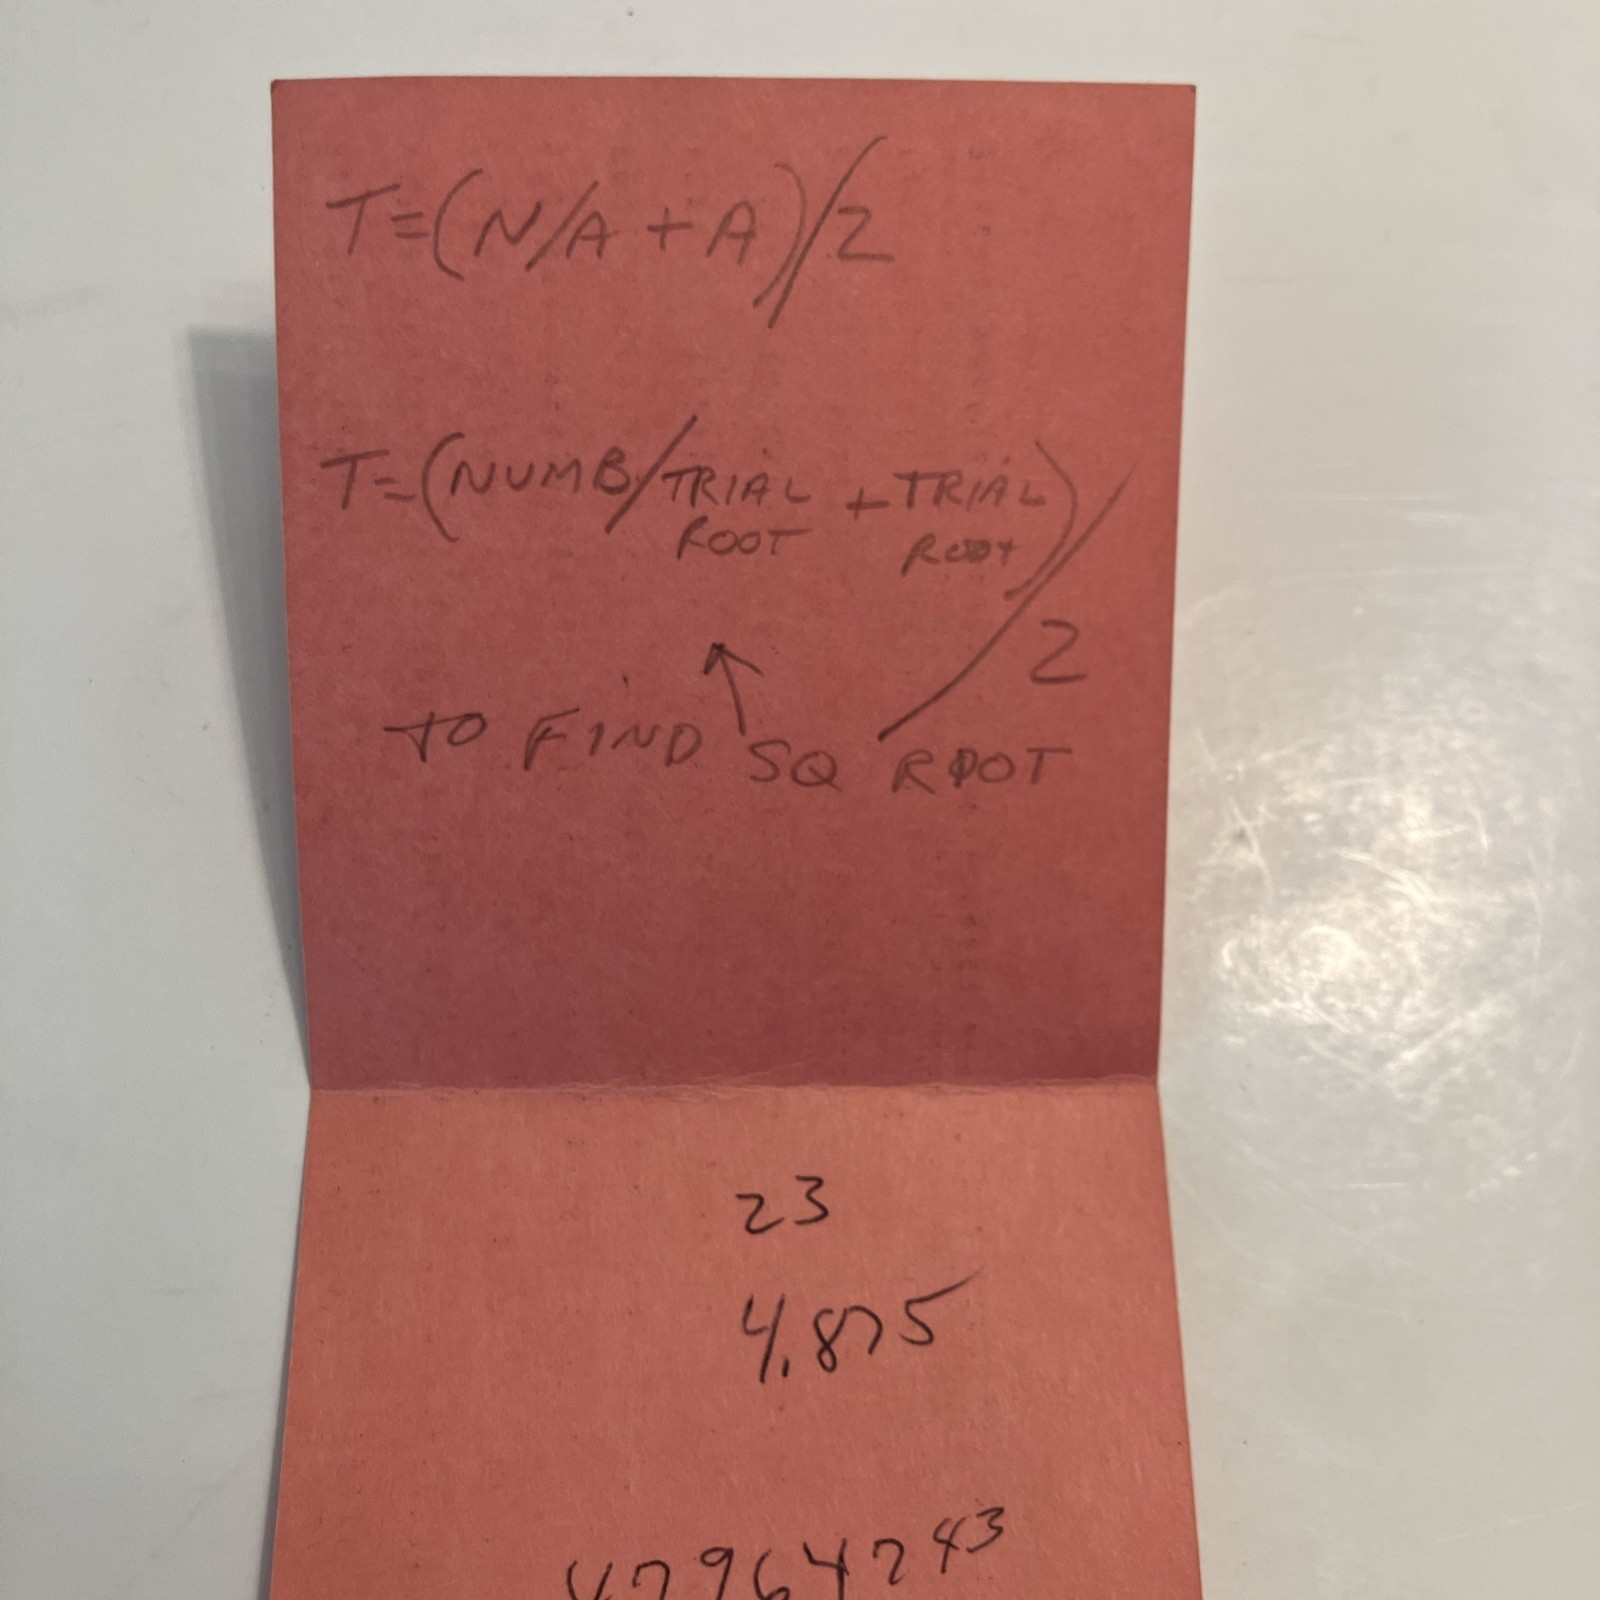 T=(N/A + A)/2
T=(NUMB/TRIAL ROOT + TRIAL ROOT)/2
TO FIND SQ ROOT
23
4.875